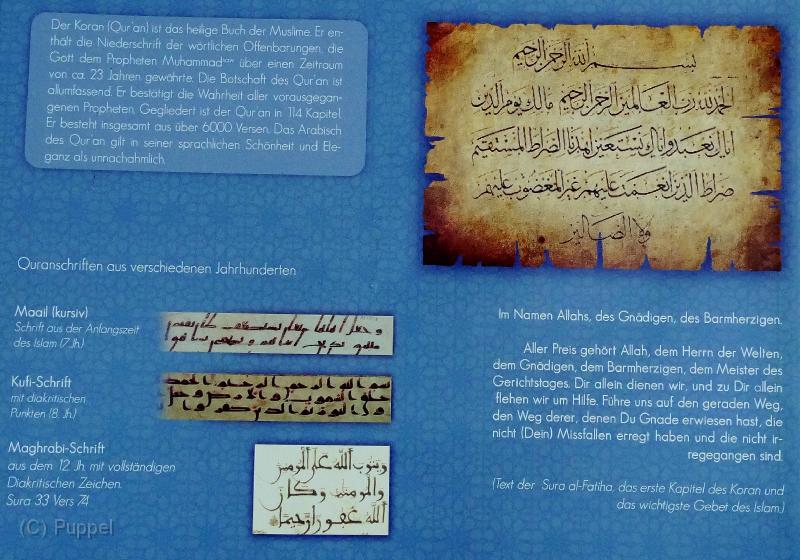 Der Koran (Qur'an) ist das heilige Buch der Muslime. Er ent-
hält die Niederschrift der wörtlichen Offenbarungen, die
Gott dem Propheten Muhammad saw über einen Zeitraum
von ca. 23 Jahren gewährte. Die Botschaft des Qur'an ist
allumfassend. Er bestätigt die Wahrheit aller vorausgegan-
genen Propheten. Gegliedert ist der Qur'an in 114 Kapitel.
Er besteht insgesamt aus über 6000 Versen. Das Arabisch
des Qur'an gilt in seiner sprachlichen Schönheit und Ele-
ganz als unnachahmlich.
Quranschriften aus verschiedenen Jahrhunderten
Maail (kursiv)
Schrift aus der Anfangszeit
des Islam (7.Jh.)
Kufi-Schrift
mit diakritischen
Punkten (8. Jh.)
Maghrabi-Schrift
aus dem 12. Jh. mit vollständigen
Diakritischen Zeichen.
Sura 33 Vers 74
ويتوب الله على المومنين
والمومنت وكان
الله غفورا رحيما
(C) Puppel
بسم الله الرحمن الرحيم
الحمد لله رب العالمين الرحمن الرحيم مالك يوم الدين
اياك نعبد واياك نستعين اهدنا الصراط المستقيم
صراط الذين انعمت عليهم غير المغضوب عليهم
ولا الضالين
Im Namen Allahs, des Gnädigen, des Barmherzigen.
Aller Preis gehört Allah, dem Herrn der Welten,
dem Gnädigen, dem Barmherzigen, dem Meister des
Gerichtstages. Dir allein dienen wir, und zu Dir allein
flehen wir um Hilfe. Führe uns auf den geraden Weg,
den Weg derer, denen Du Gnade erwiesen hast, die
nicht (Dein) Missfallen erregt haben und die nicht ir-
regegangen sind.
(Text der Sura al-Fatiha, das erste Kapitel des Koran und
das wichtigste Gebet des Islam.)